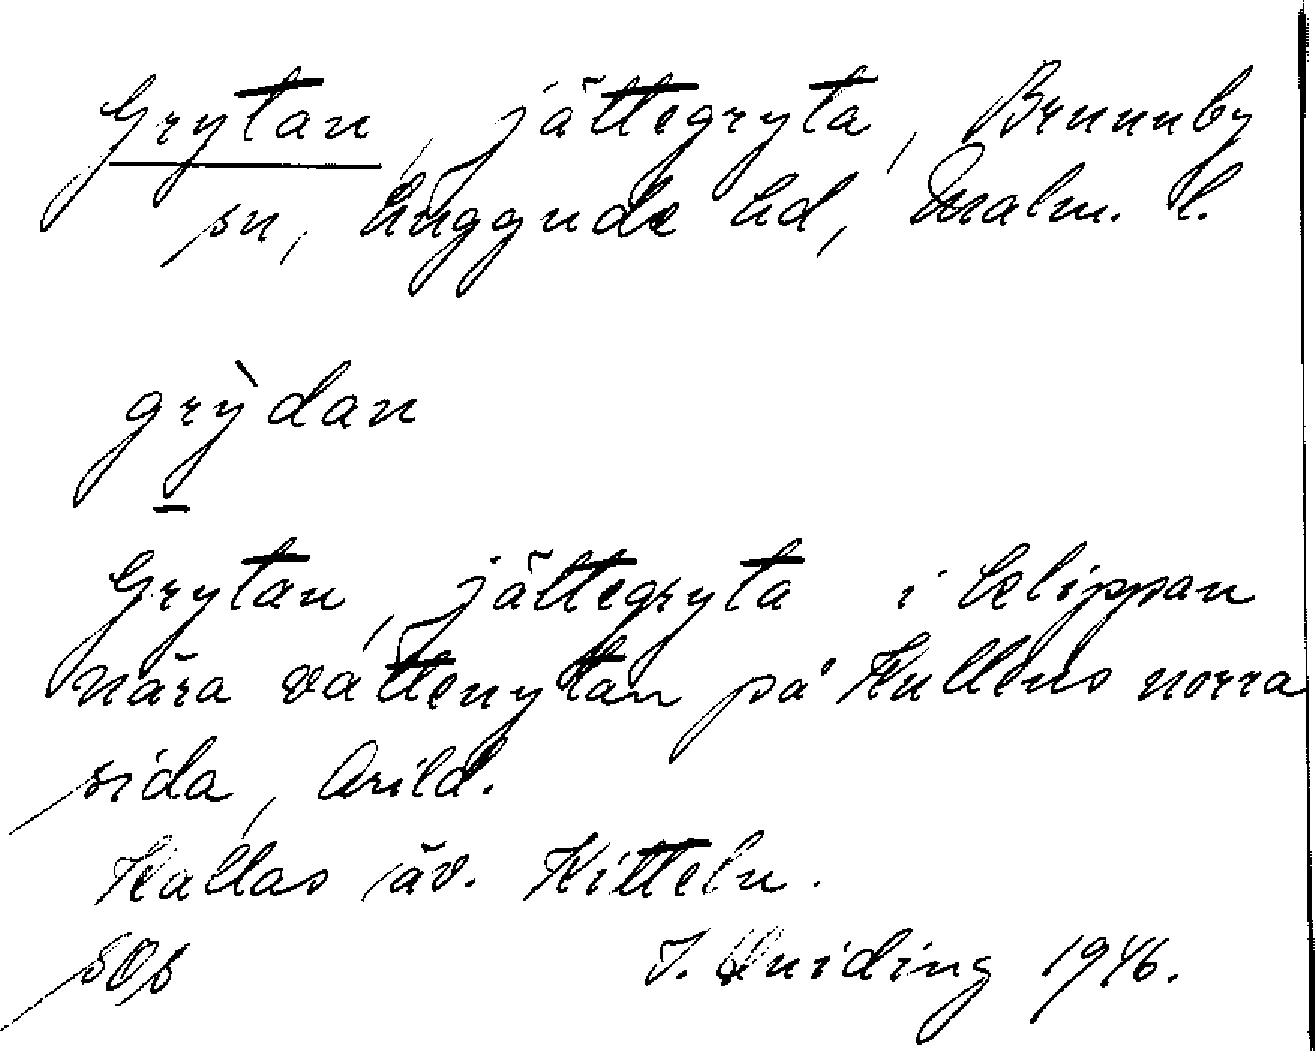 Grytan, jättegryta, Brunnby
sn, Luggude hd, Malm. l.
grỳdan
Grytan, jättegryta i klippan
nära vattenytan på Kullens norra
sida, Arild.
Kallas äv. Kitteln.
SOs
J. Quiding 1946.